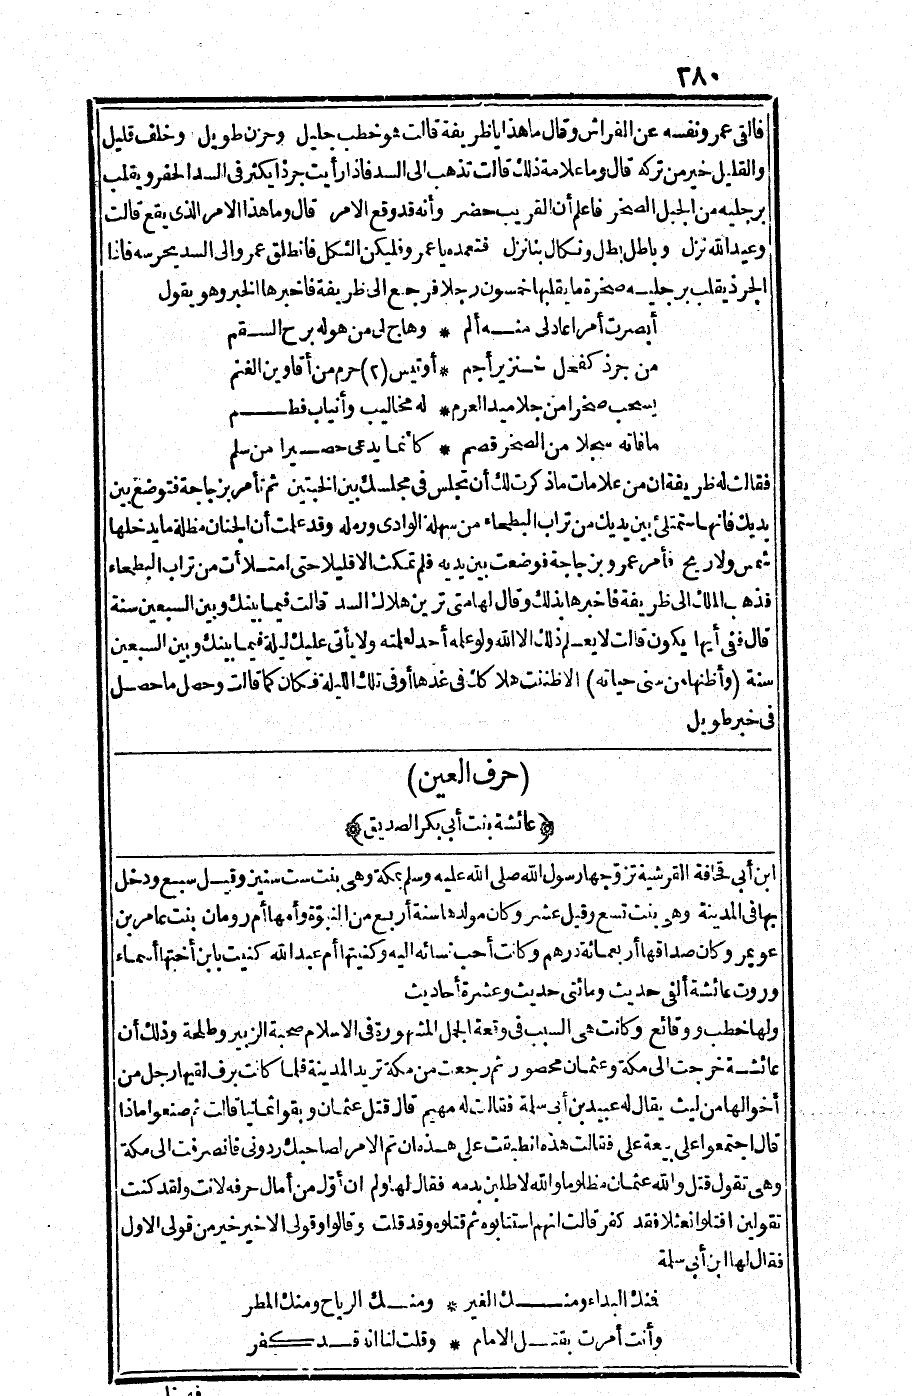 ٢٨٠
فالقى عمرو نفسه عن الفراش وقال ما هذا يا ظريفة قالت هو خطب جليل وحزن طويل وخلف قليل
والقليل خير من تركه قال وما علامة ذلك قالت تذهب الى السد فاذا رأيت جرذا يكثر فى السد الحفر ويقلب
برجليه من الجبل الصخر فاعلم أن القريب حضر وأنه قد وقع الامر قال وما هذا الامر الذى يقع قالت
وعيد الله نزل وباطل بطل ونكال بنا نزل فتعمده يا عمرو فليكن الثكل فانطلق عمرو الى السد يحرسه فاذا
الجرذ يقلب برجليه صخرة ما يقلبها خمسون رجلا فرجع الى ظريفة فأخبرها الخبر وهو يقول
أبصرت أمرا عادلى منه ألم * وهاج لى من هوله برح السقم
من جرذ كفحل خنزير أجم * أو تيس (٢) حرم من أفاوين الغنم
يسحب صخرا من جلاميد العرم * له مخاليب وأنياب قطم
ما فاته سجلا من الصخر قصم * كأنما يدعى حصيرا من سلم
فقالت له ظريفة ان من علامات ما ذكرت لك أن تجلس فى مجلسك بين الجنتين ثم تأمر بزجاجة فتوضع بين
يديك فانها ستمتلئ بين يديك من تراب البطحاء من سهلة الوادى ورمله وقد علمت أن الجنان مظلة ما يدخلها
شمس ولا ريح فأمر عمرو بزجاجة فوضعت بين يديه فلم تمكث الا قليلا حتى امتلأت من تراب البطحاء
فذهب الملك الى ظريفة فأخبرها بذلك وقال لها متى ترين هلاك السد قالت فيما بينك وبين السبعين سنة
قال ففى أيها يكون قالت لا يعلم ذلك الا الله ولو علمه أحد لعلمته ولا يأتى عليك ليلة فيما بينك وبين السبعين
سنة (وأظنها من سنى حياته) الا ظننت هلاكك فى غدها أو فى تلك الليلة فكان كما قالت وحصل ما حصل
فى خبر طويل
(حرف العين)
﴿عائشة بنت أبى بكر الصديق﴾
ابن أبى قحافة القرشية تزوّجها رسول الله صلى الله عليه وسلم بمكة وهى بنت ست سنين وقيل سبع ودخل
بها فى المدينة وهى بنت تسع وقيل عشر وكان مولدها سنة أربع من النبوّة وأمها أم رومان بنت عامر بن
عويمر وكان صداقها أربعمائة درهم وكانت أحب نسائه اليه وكنيتها أم عبد الله كنيت بابن أختها أسماء
وروت عائشة ألفى حديث ومائتى حديث وعشرة أحاديث
ولها خطب ووقائع وكانت هى السبب فى وقعة الجمل المشهورة فى الاسلام صحبة الزبير وطلحة وذلك أن
عائشة خرجت الى مكة وعثمان محصور ثم رجعت من مكة تريد المدينة فلما كانت بسرف لقيها رجل من
أخوالها من ليث يقال له عبيد بن أبى سلمة فقالت له مهيم قال قتل عثمان وبقوا ثمانيا قالت ثم صنعوا ماذا
قال اجتمعوا على بيعة على فقالت هذه انطبقت على هذه ان تم الامر لصاحبك ردونى فانصرفت الى مكة
وهى تقول قتل والله عثمان مظلوما والله لاطلبن بدمه فقال لها ولم ان أوّل من أمال حرفه لانت ولقد كنت
تقولين اقتلوا نعثلا فقد كفر قالت انهم استتابوه ثم قتلوه وقد قلت وقالوا وقولى الاخير خير من قولى الاول
فقال لها ابن أبى سلمة
فمنك البداء ومنك الغير * ومنك الرياح ومنك المطر
وأنت أمرت بقتل الامام * وقلت لنا انه قد كفر